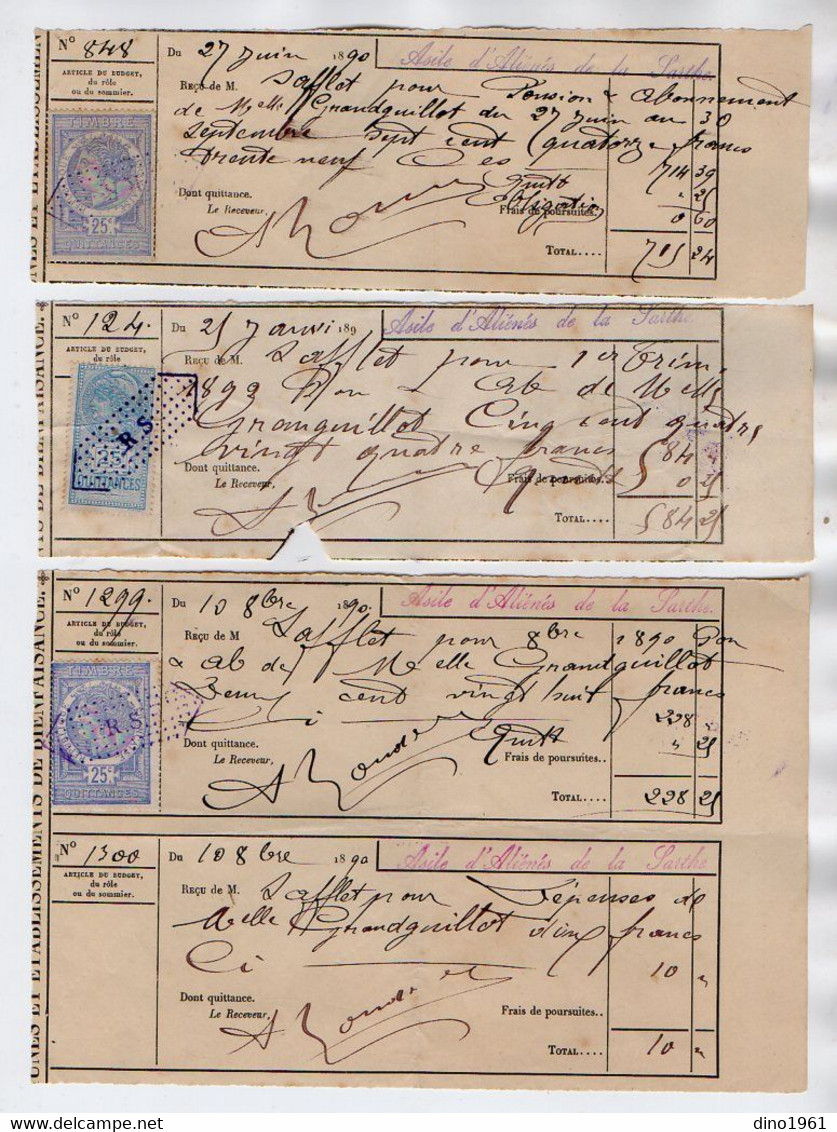 N° 848
ARTICLE DU BUDGET,
du rôle
ou du sommier.
TIMBRE
25c
QUITTANCES
Du 27 Juin 1890 Asile d'Aliénés de la Sarthe.
REÇU DE M. Lafflet pour Pension & abonnement
de Melle Grandguillot du 27 Juin au 30
Septembre sept cent quatorze francs
trente neuf Ces 714 39
Dont quittance. Quitt " 25
Le Receveur, Frais de poursuites. 0 60
TOTAL.... 715 24
N° 124.
ARTICLE DU BUDGET,
du rôle
R S
25c
QUITTANCES
Du 25 Janvi 189 Asile d'Aliénés de la Sarthe
REÇU DE M. Lafflet pour 1er Trim.
1892 Pon & Ab de Melle
Granguillot Cinq cent quatre
vingt quatre francs 584 "
Dont quittance. Quitt 0 25
Le Receveur, Frais de poursuites.
TOTAL.... 584 25
N° 1299.
ARTICLE DU BUDGET,
du rôle
ou du sommier.
TIMBRE
R S
25c
QUITTANCES
Du 10 8bre 1890. Asile d'Aliénés de la Sarthe.
REÇU DE M Lafflet pour 8bre 1890 Pon
& ab de Melle Grandguillot
Deux cent vingt huit francs
Ci 228 "
Dont quittance. Quitt " 25
Le Receveur, Frais de poursuites..
TOTAL.... 228 25
N° 1300
ARTICLE DU BUDGET,
du rôle
ou du sommier.
Du 10 8bre 1890 Asile d'Aliénés de la Sarthe
REÇU DE M. Lafflet pour Dépenses de
Melle Grandguillot dix francs
Ci 10 "
Dont quittance.
Le Receveur, Frais de poursuites..
TOTAL.... 10 "
UNES ET ETABLISSEMENTS DE BIENFAISANCE.
dino1961